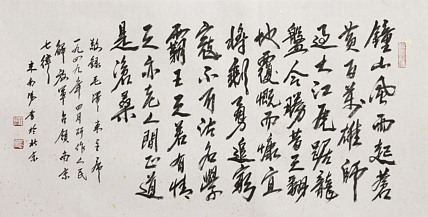 鐘山風雨起蒼
黄百萬雄師
過大江虎踞龍
盤今勝昔天翻
地覆慨而慷宜
將剩勇追窮
寇不可沽名學
霸王天若有情
天亦老人間正道
是滄桑
敬錄毛澤東主席
一九四九年四月所作人民
解放軍占領南京
七律
書於北京